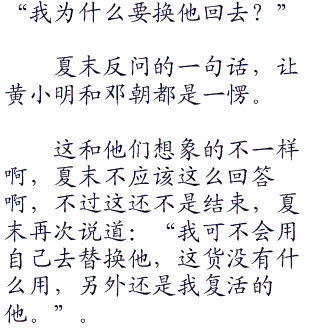 “我为什么要换他回去？”
夏末反问的一句话，让
黄小明和邓朝都是一愣。
这和他们想象的不一样
啊，夏末不应该这么回答
啊，不过这还不是结束，夏
末再次说道：“我可不会用
自己去替换他，这货没有什
么用，另外还是我复活的
他。”。